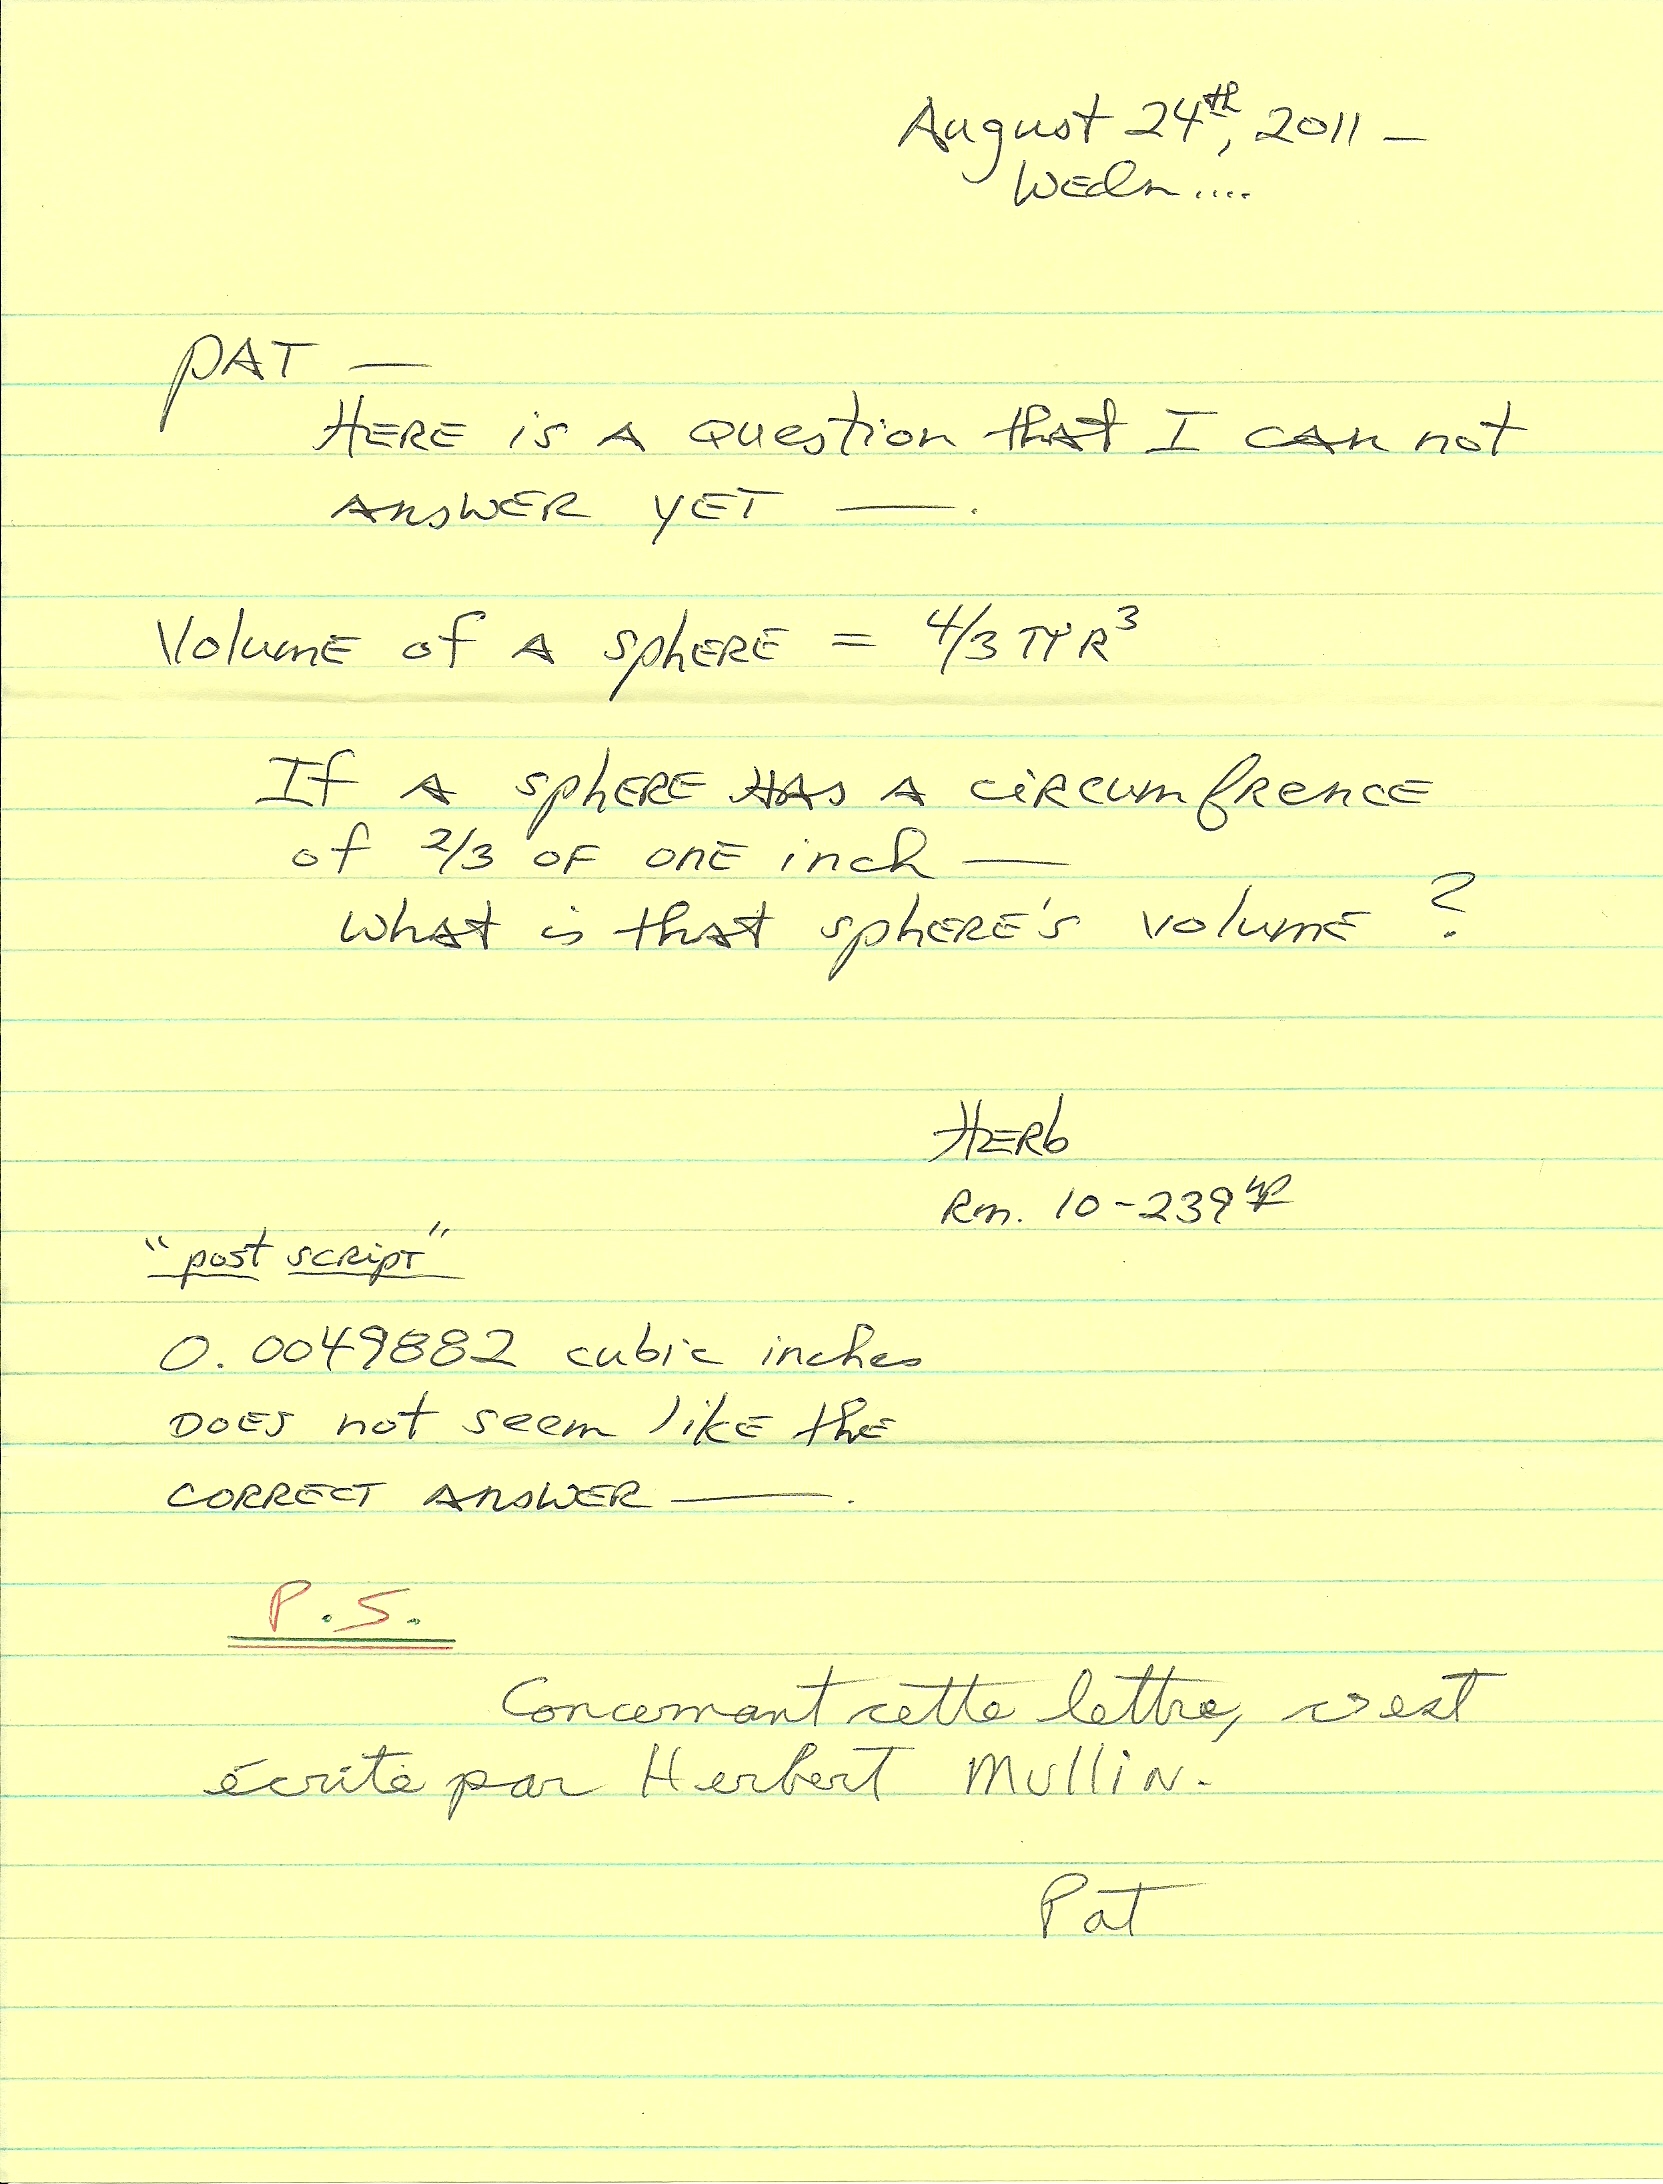 August 24th, 2011 —
Wedn....
PAT —
HERE is A Question that I can not
ANSWER YET — .
Volume of A sphERE = 4/3 π R³
If A sphERE HAS A ciRcumfRence
of 2/3 OF ONE inch —
what is that sphERE's volumE ?
HERb
Rm. 10-239 up
"post script"
0.0049882 cubic inches
DOES not seem likE the
CORRECT ANSWER — .
P.S.
Concernant cette lettre, c'est
écrite par Herbert MulliN.
Pat